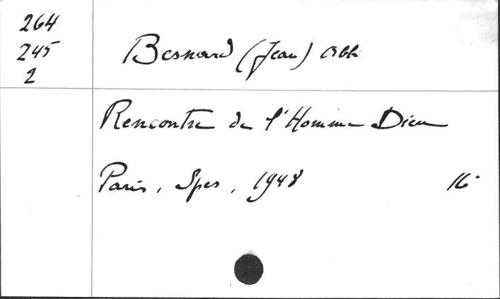 264
245
2
Besnard (Jean) Abbé
Rencontre de l'Homme Dieu
Paris, Spes, 1948 16°